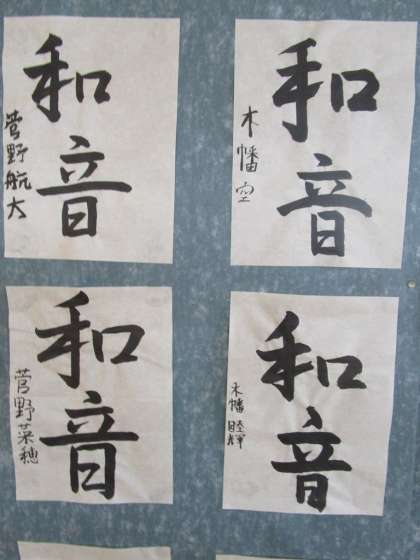 和音
菅野航大
和音
木幡空
和音
菅野菜穂
和音
木幡睦輝